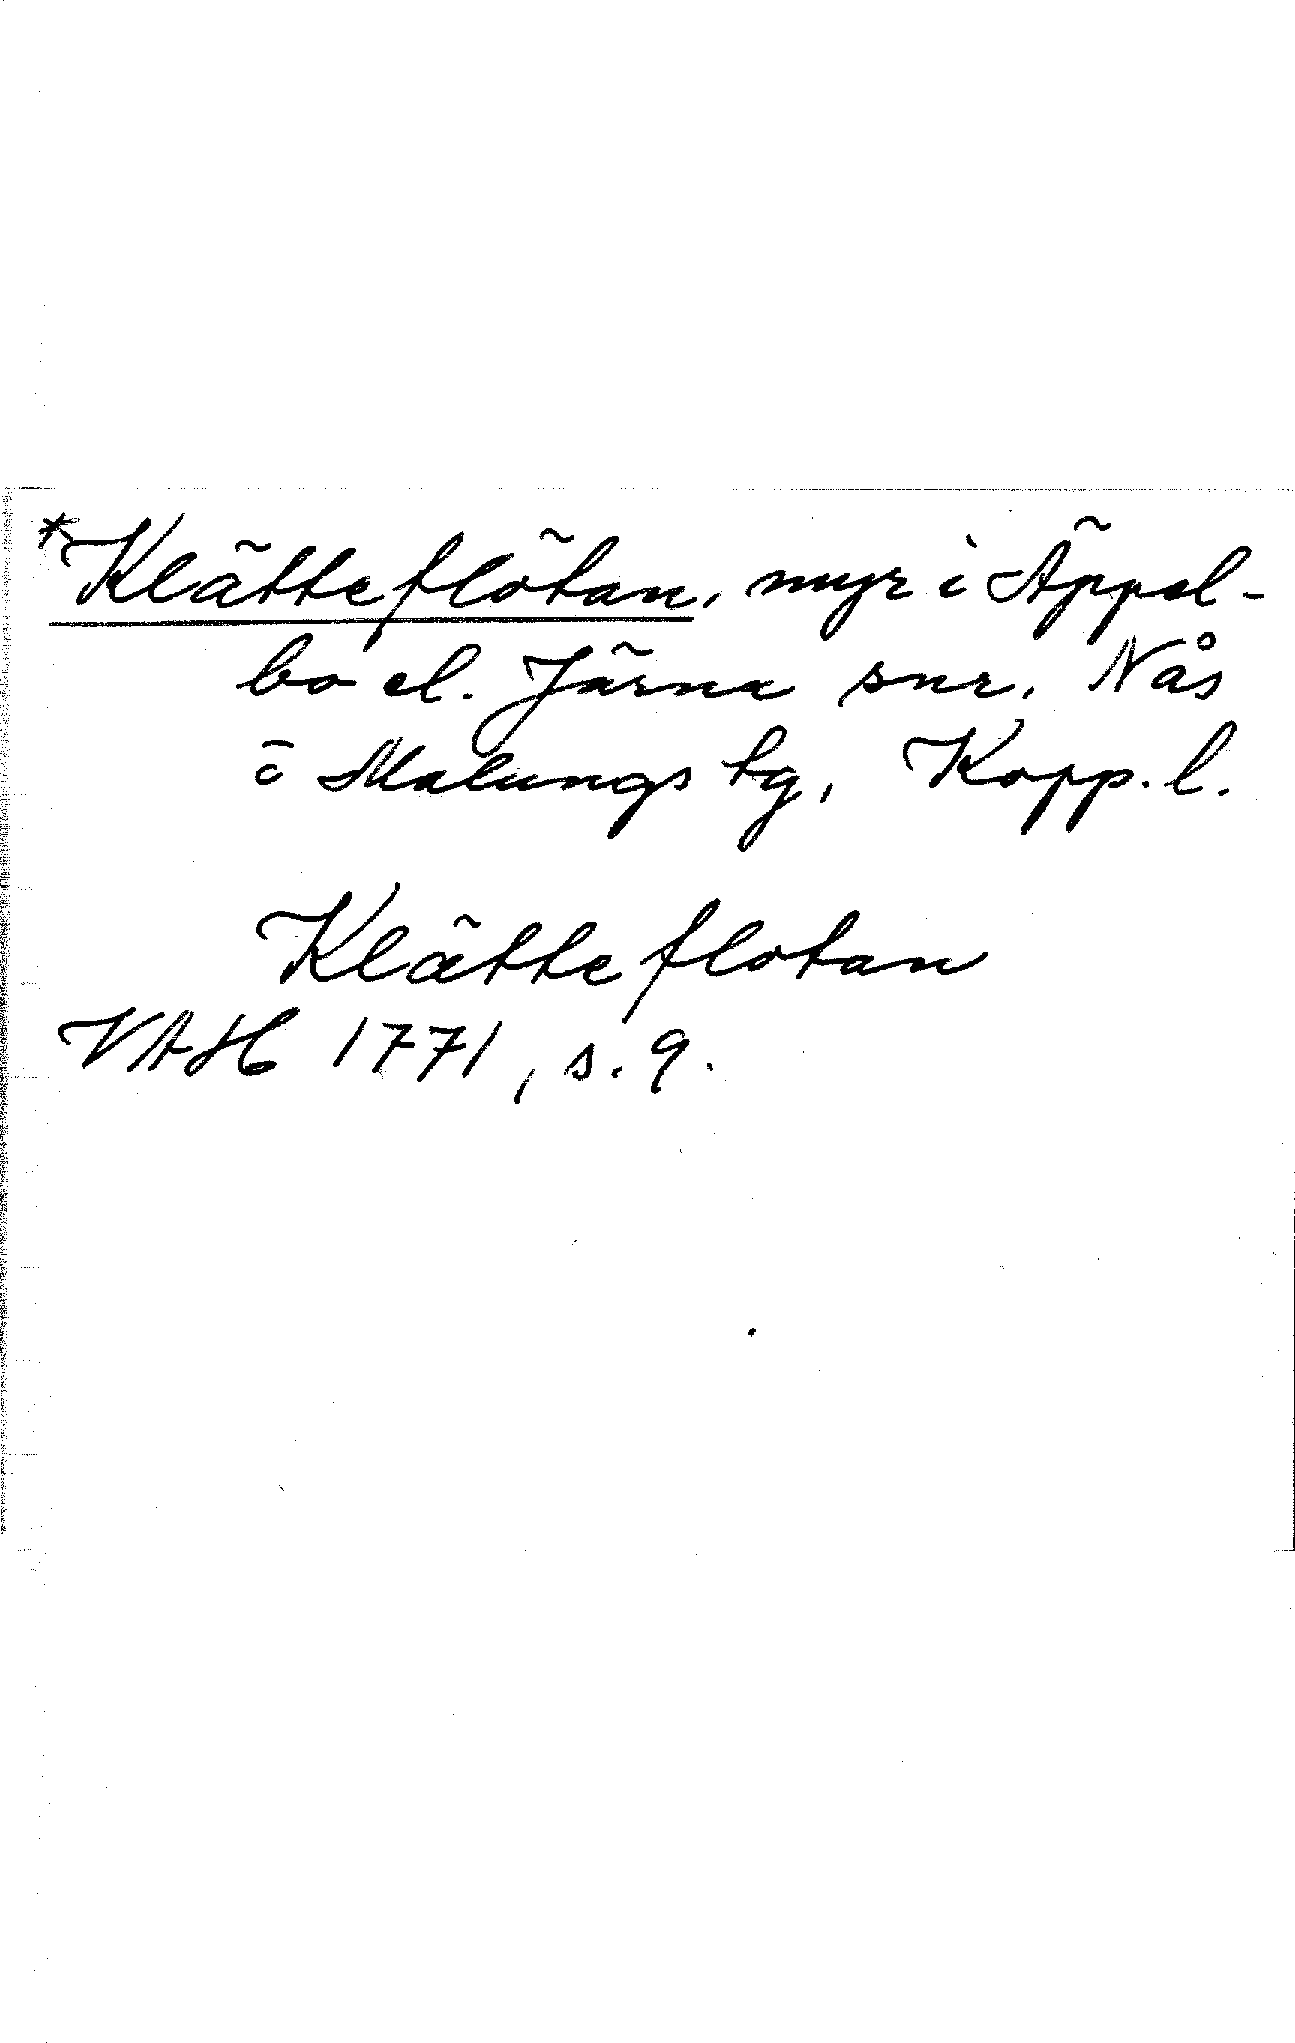 *Klätteflötan, myr i Äppel-
bo el. Järna snr, Nås
o Malungs tg, Kopp. l.
Klätteflotan
VAH 1771, s. 9.